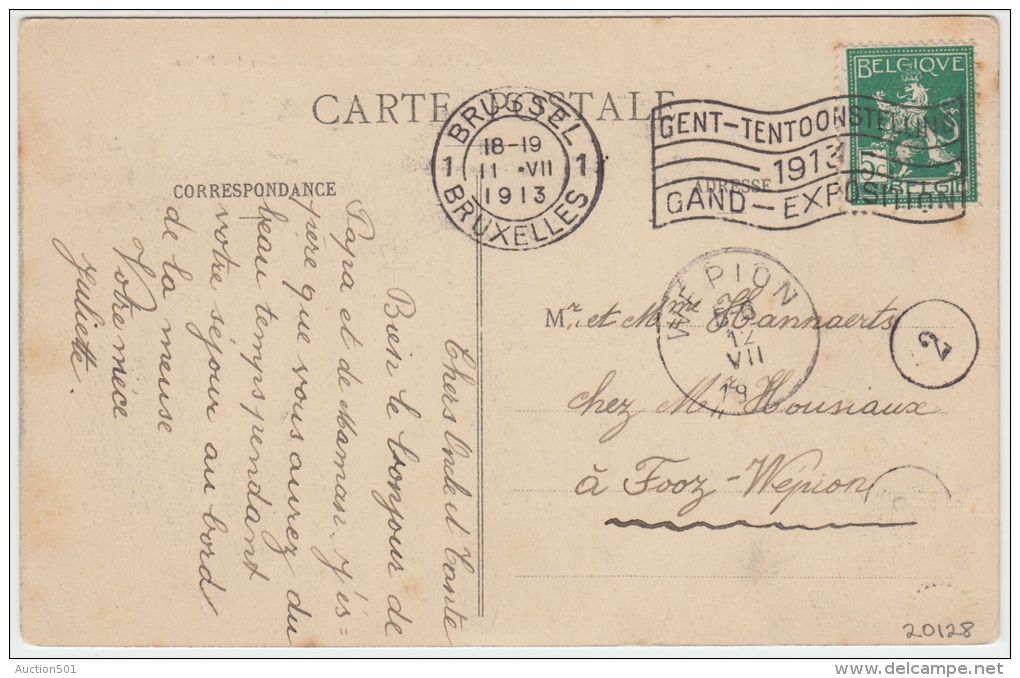 CARTE POSTALE
BRUSSEL
1 18-19 1
11 VII
1913
BRUXELLES
GENT-TENTOONSTELLING
1913
GAND-EXPOSITION
BELGIQVE
5c
BELGIË
CORRESPONDANCE
ADRESSE
Chers Oncle et Tante
Bien le bonjour de
Papa et de Maman. J'es=
père que vous aurez du
beau temps pendant
votre séjour au bord
de la meuse
Votre nièce
Juliette.
WÉPION
12
VII
19
2
Mr. et Mme Hannaerts
chez Mr. Housiaux
à Fooz-Wépion
20128
Auction501
delcampe.net